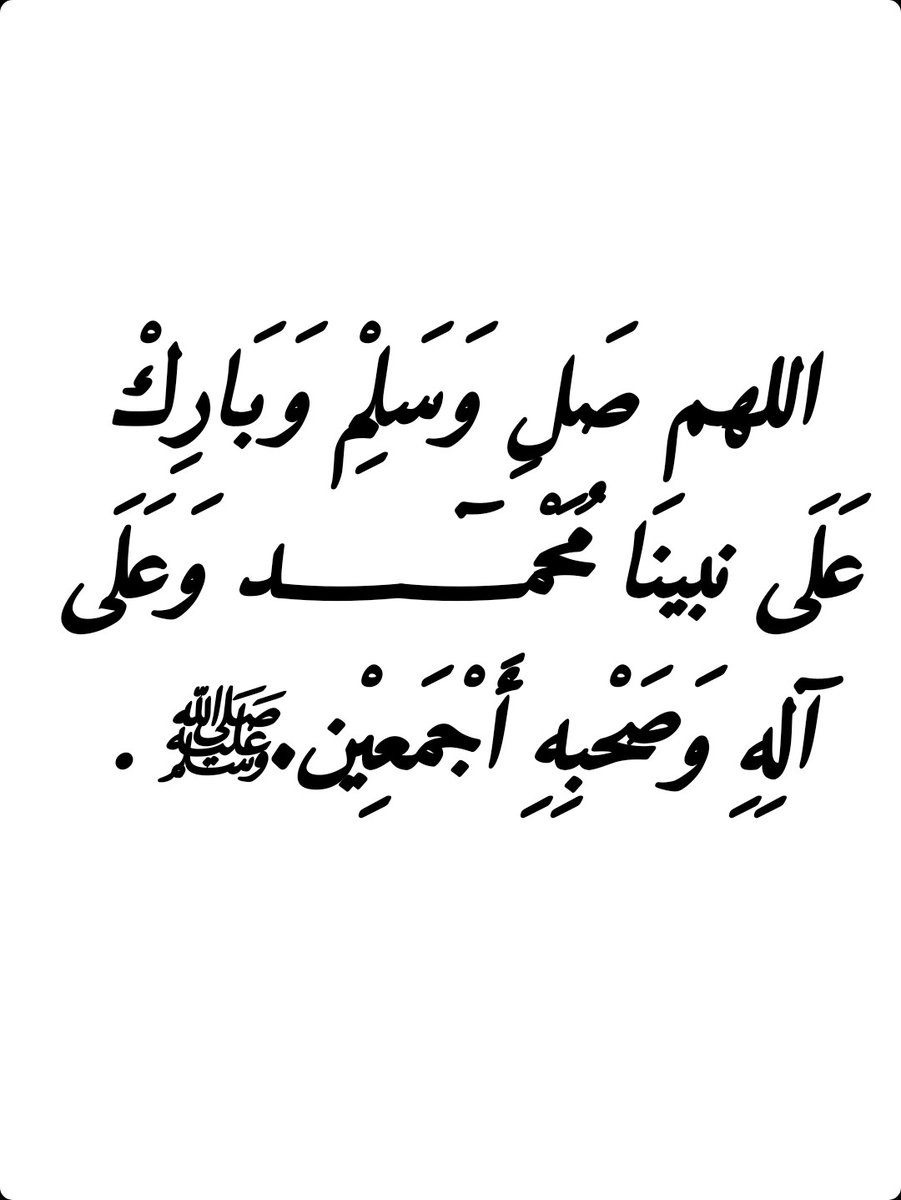 اللهم صَلِ وَسَلِمْ وَبَارِكْ
عَلَى نبينَا مُحَمْــــــــٓــــــــد وَعَلَى
آلِهِ وَصَحْبِهِ أَجْمَعِيْن.ﷺ .